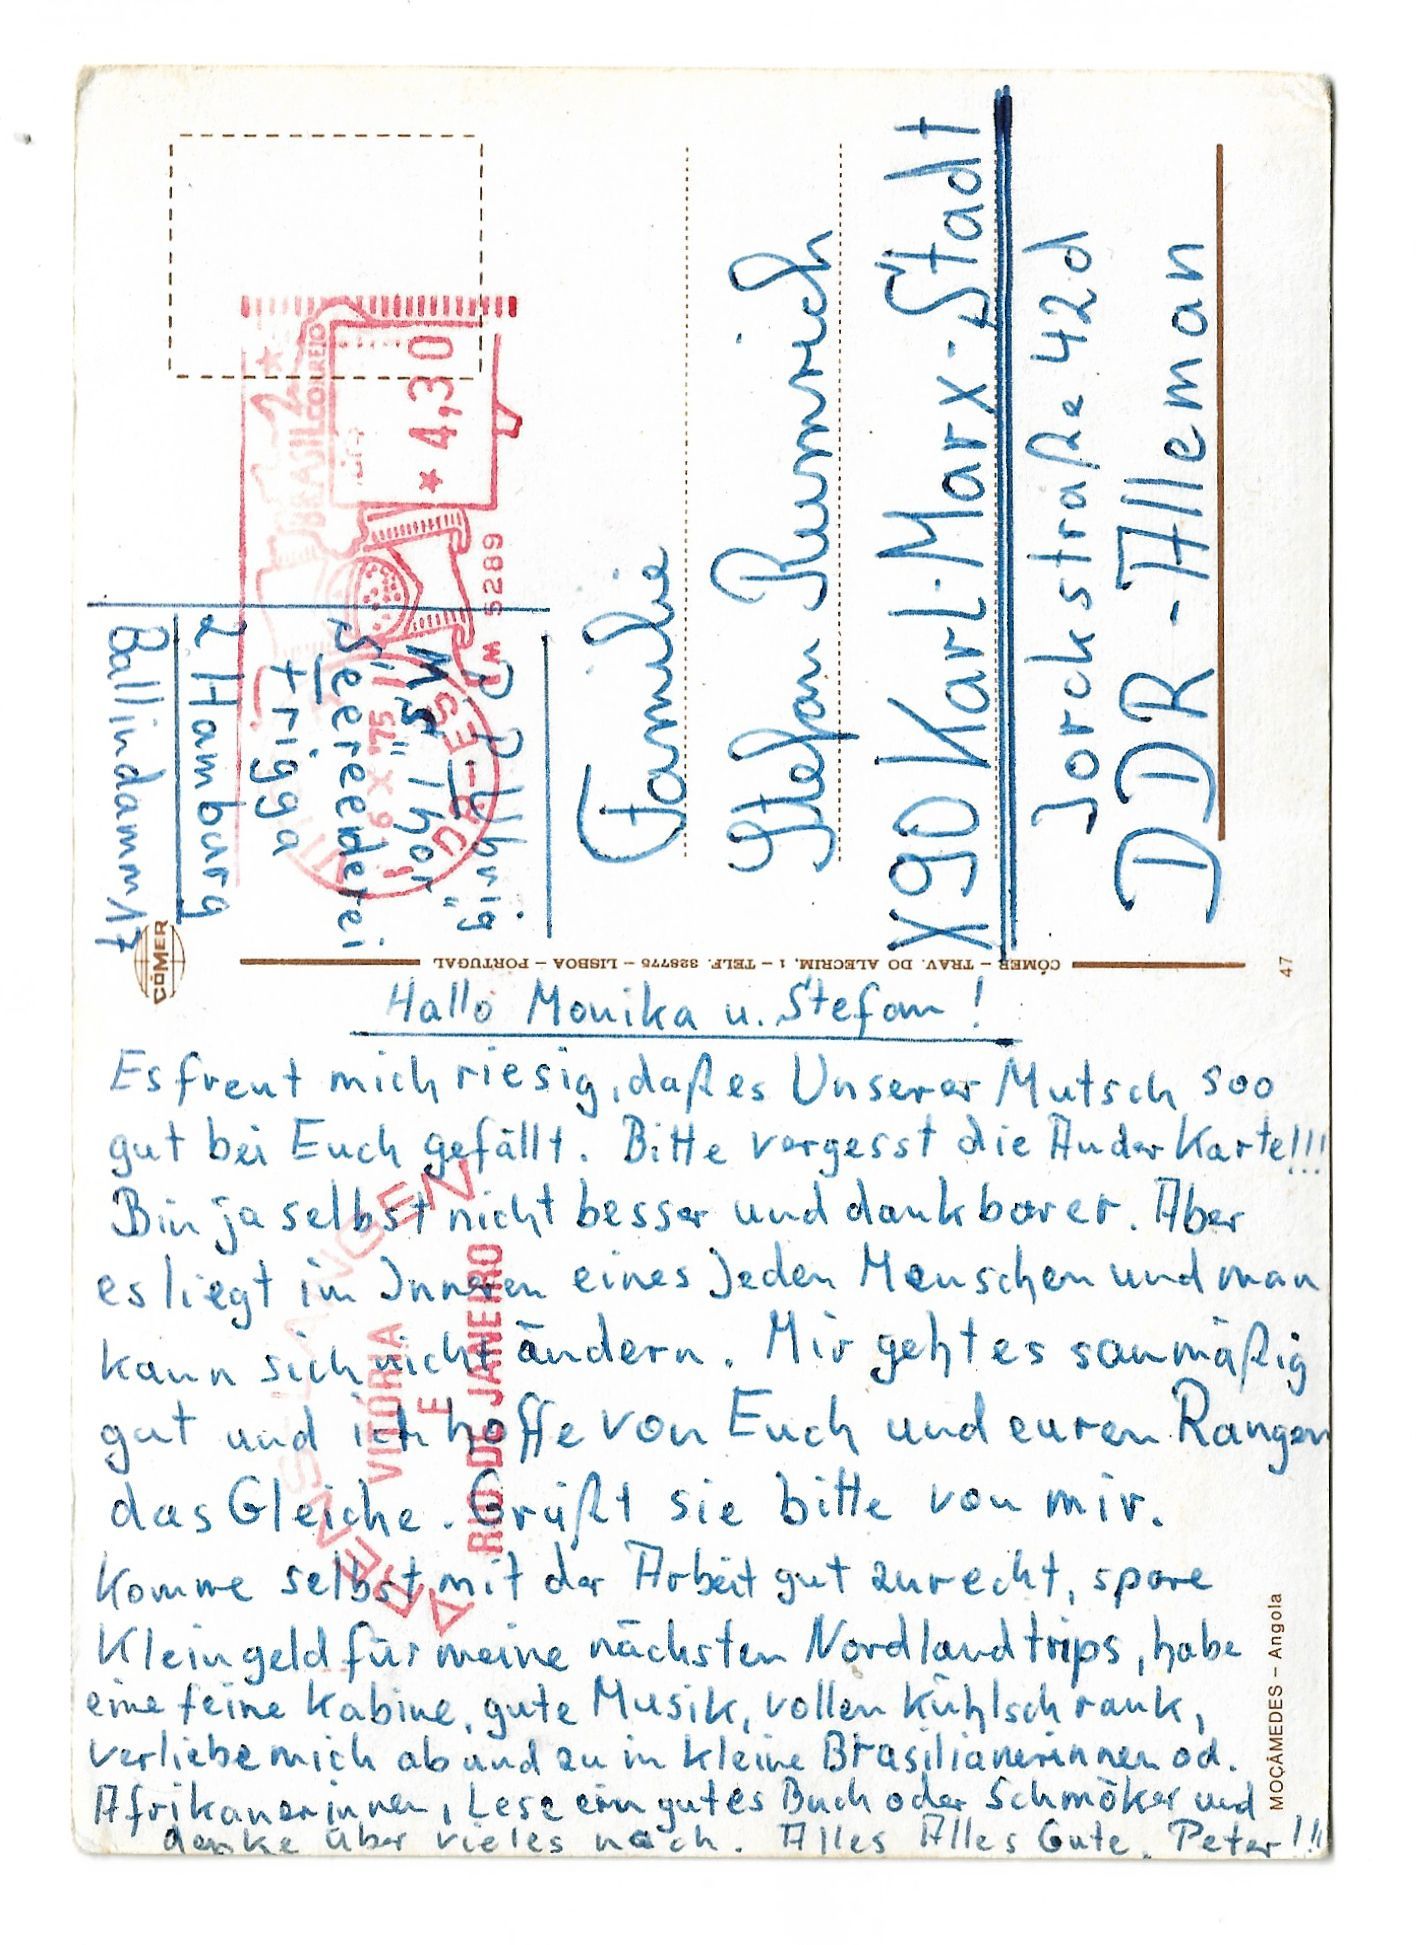 Hallo Monika u. Stefan!
Es freut mich riesig, daß es Unserer Mutsch soo
gut bei Euch gefällt. Bitte vergesst die Ander Karte!!!
Bin ja selbst nicht besser und dankbarer. Aber
es liegt im Inneren eines Jeden Menschen und man
kann sich nicht ändern. Mir geht es saumäßig
gut und ich hoffe von Euch und euren Rangen
das Gleiche. Grüßt sie bitte von mir.
Komme selbst mit der Arbeit gut zurecht, spare
Kleingeld für meine nächsten Nordlandtrips, habe
eine feine Kabine, gute Musik, vollen Kühlschrank,
verliebe mich ab und zu in kleine Brasilianerinnen od.
Afrikanerinnen, Lese ein gutes Buch oder Schmöker und
denke über vieles nach. Alles Alles Gute. Peter!!!
"Thor"
Seereederei
Frigga
2 Hamburg
Ballindamm 17
Familie
Stefan Rumrich
X90 Karl-Marx-Stadt
Jorckstraße 42d
DDR - Alleman
BRASIL CORREIO
* 4,30
5289
6 X '75
VITÓRIA
E
RIO DE JANEIRO
CÓMER
CÓMER – TRAV. DO ALECRIM, 1 – TELF. 328775 – LISBOA – PORTUGAL
47
MOÇÂMEDES – Angola